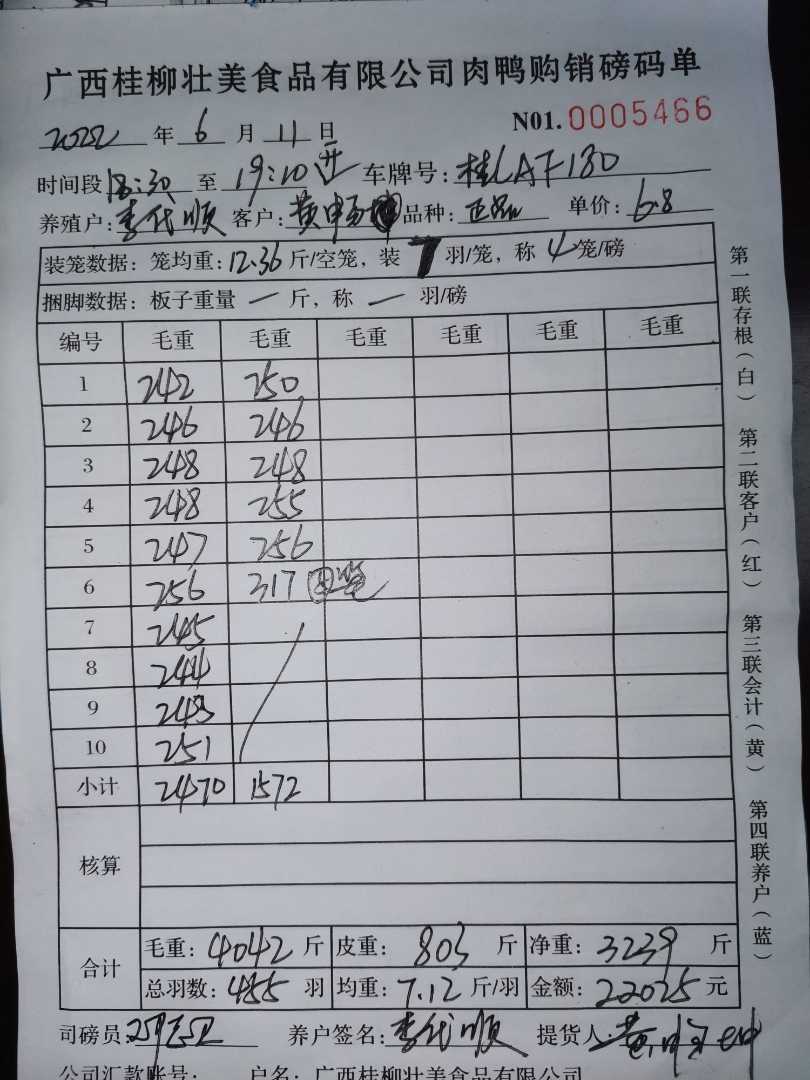 广西桂柳壮美食品有限公司肉鸭购销磅码单
2022 年 6 月 11 日 N01. 0005466
时间段 18:30 至 19:10 车牌号: 桂LAF130
养殖户: 李代顺 客户: 黄 品种: 正品 单价: 6.8
装笼数据: 笼均重: 12.36 斤/空笼, 装 7 羽/笼, 称 4 笼/磅
捆脚数据: 板子重量 一 斤, 称 一 羽/磅
编号 毛重 毛重 毛重 毛重 毛重 毛重
1 242 250
2 246 246
3 248 248
4 248 255
5 247 256
6 256 317
7 245
8 244
9 243
10 251
小计 2470 1572
核算
合计 毛重: 4042 斤 皮重: 803 斤 净重: 3239 斤
总羽数: 455 羽 均重: 7.12 斤/羽 金额: 22025 元
司磅员: 养户签名: 李代顺 提货人:
公司汇款账号: 户名: 广西桂柳壮美食品有限公司
第一联存根(白) 第二联客户(红) 第三联会计(黄) 第四联养户(蓝)